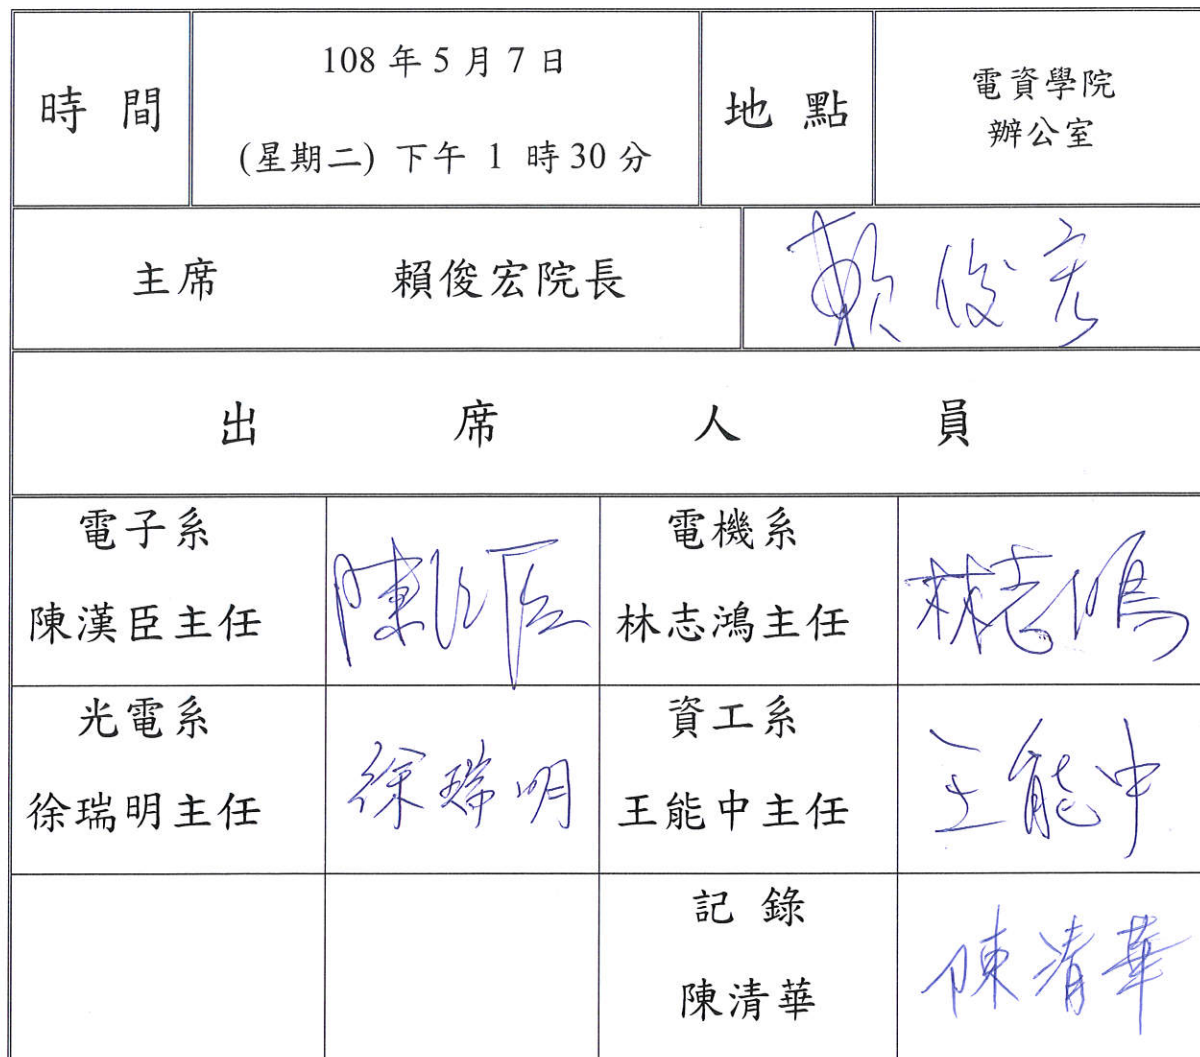 時 間
108 年 5 月 7 日
(星期二) 下午 1 時 30 分
地 點
電資學院
辦公室
主席 賴俊宏院長
賴俊宏
出 席 人 員
電子系
陳漢臣主任
陳漢臣
電機系
林志鴻主任
林志鴻
光電系
徐瑞明主任
徐瑞明
資工系
王能中主任
王能中
記 錄
陳清華
陳清華